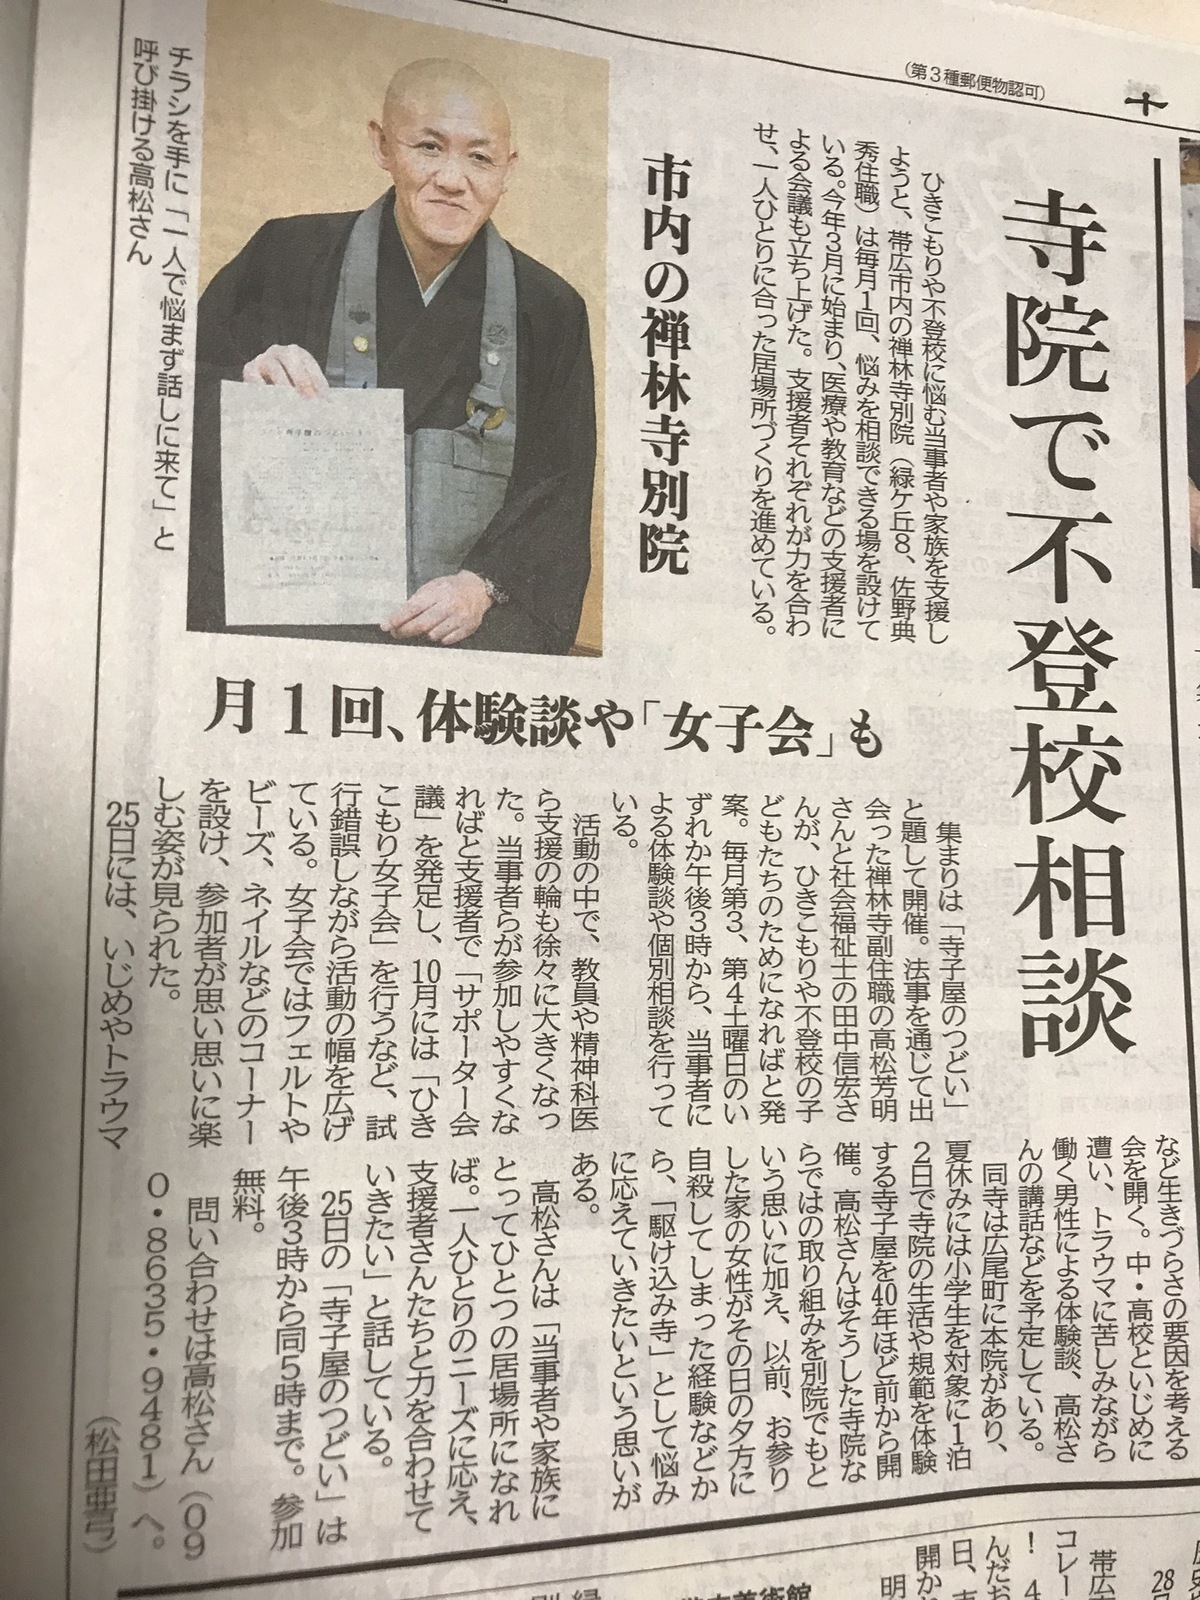 (第3種郵便物認可)
十
寺院で不登校相談
市内の禅林寺別院
月1回、体験談や「女子会」も
ひきこもりや不登校に悩む当事者や家族を支援し
ようと、帯広市内の禅林寺別院(緑ケ丘8、佐野典
秀住職)は毎月1回、悩みを相談できる場を設けて
いる。今年3月に始まり、医療や教育などの支援者に
よる会議も立ち上げた。支援者それぞれが力を合わ
せ、一人ひとりに合った居場所づくりを進めている。
チラシを手に「一人で悩まず話しに来て」と
呼び掛ける高松さん
集まりは「寺子屋のつどい」
と題して開催。法事を通じて出
会った禅林寺副住職の高松芳明
さんと社会福祉士の田中信宏さ
んが、ひきこもりや不登校の子
どもたちのためになればと発
案。毎月第3、第4土曜日のい
ずれか午後3時から、当事者に
よる体験談や個別相談を行って
いる。
活動の中で、教員や精神科医
ら支援の輪も徐々に大きくなっ
た。当事者らが参加しやすくな
ればと支援者で「サポーター会
議」を発足し、10月には「ひき
こもり女子会」を行うなど、試
行錯誤しながら活動の幅を広げ
ている。女子会ではフェルトや
ビーズ、ネイルなどのコーナー
を設け、参加者が思い思いに楽
しむ姿が見られた。
25日には、いじめやトラウマ
など生きづらさの要因を考える
会を開く。中・高校といじめに
遭い、トラウマに苦しみながら
働く男性による体験談、高松さ
んの講話などを予定している。
同寺は広尾町に本院があり、
夏休みには小学生を対象に1泊
2日で寺院の生活や規範を体験
する寺子屋を40年ほど前から開
催。高松さんはそうした寺院な
らではの取り組みを別院でもと
いう思いに加え、以前、お参り
した家の女性がその日の夕方に
自殺してしまった経験などか
ら、「駆け込み寺」として悩み
に応えていきたいという思いが
ある。
高松さんは「当事者や家族に
とってひとつの居場所になれ
ば。一人ひとりのニーズに応え、
支援者さんたちと力を合わせて
いきたい」と話している。
25日の「寺子屋のつどい」は
午後3時から同5時まで。参加
無料。
問い合わせは高松さん(09
0・8635・9481)へ。
(松田亜弓)
帯広
コレー
! 4
んだお
開か
28
美術館